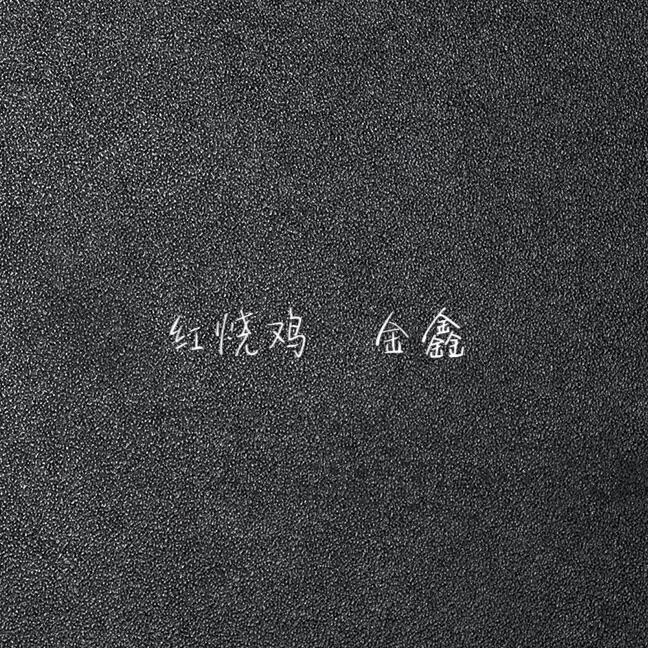 红烧鸡 金鑫